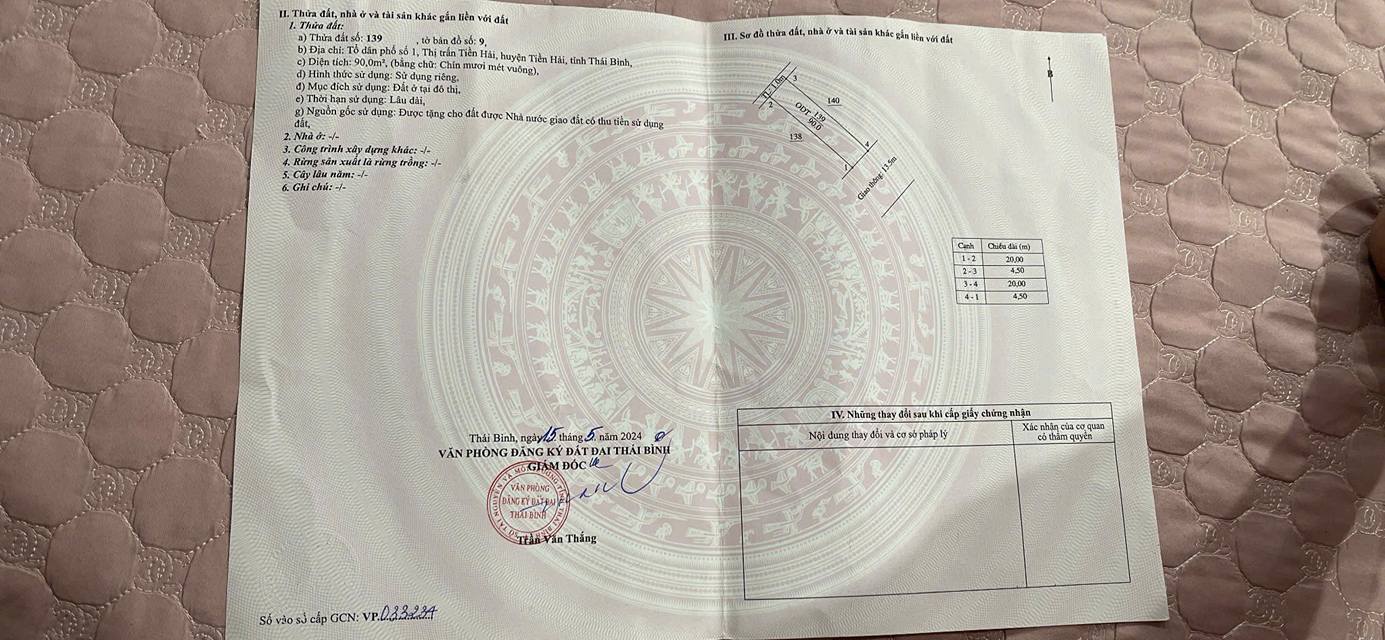 II. Thửa đất, nhà ở và tài sản khác gắn liền với đất
1. Thửa đất:
a) Thửa đất số: 139 , tờ bản đồ số: 9,
b) Địa chỉ: Tổ dân phố số 1, Thị trấn Tiền Hải, huyện Tiền Hải, tỉnh Thái Bình,
c) Diện tích: 90,0m², (bằng chữ: Chín mươi mét vuông),
d) Hình thức sử dụng: Sử dụng riêng,
đ) Mục đích sử dụng: Đất ở tại đô thị,
e) Thời hạn sử dụng: Lâu dài,
g) Nguồn gốc sử dụng: Được tặng cho đất được Nhà nước giao đất có thu tiền sử dụng
đất,
2. Nhà ở: -/-
3. Công trình xây dựng khác: -/-
4. Rừng sản xuất là rừng trồng: -/-
5. Cây lâu năm: -/-
6. Ghi chú: -/-
Thái Bình, ngày 15 tháng 5 năm 2024
VĂN PHÒNG ĐĂNG KÝ ĐẤT ĐAI THÁI BÌNH
GIÁM ĐỐC
VĂN PHÒNG
ĐĂNG KÝ ĐẤT ĐAI
THÁI BÌNH
Trần Văn Thắng
Số vào sổ cấp GCN: VP.033234
III. Sơ đồ thửa đất, nhà ở và tài sản khác gắn liền với đất
B
TL: 1.0m
3
2
140
ODT 139
90.0
138
4
1
Giao thông: 13.5m
Cạnh Chiều dài (m)
1 - 2 20,00
2 - 3 4,50
3 - 4 20,00
4 - 1 4,50
IV. Những thay đổi sau khi cấp giấy chứng nhận
Nội dung thay đổi và cơ sở pháp lý
Xác nhận của cơ quan
có thẩm quyền